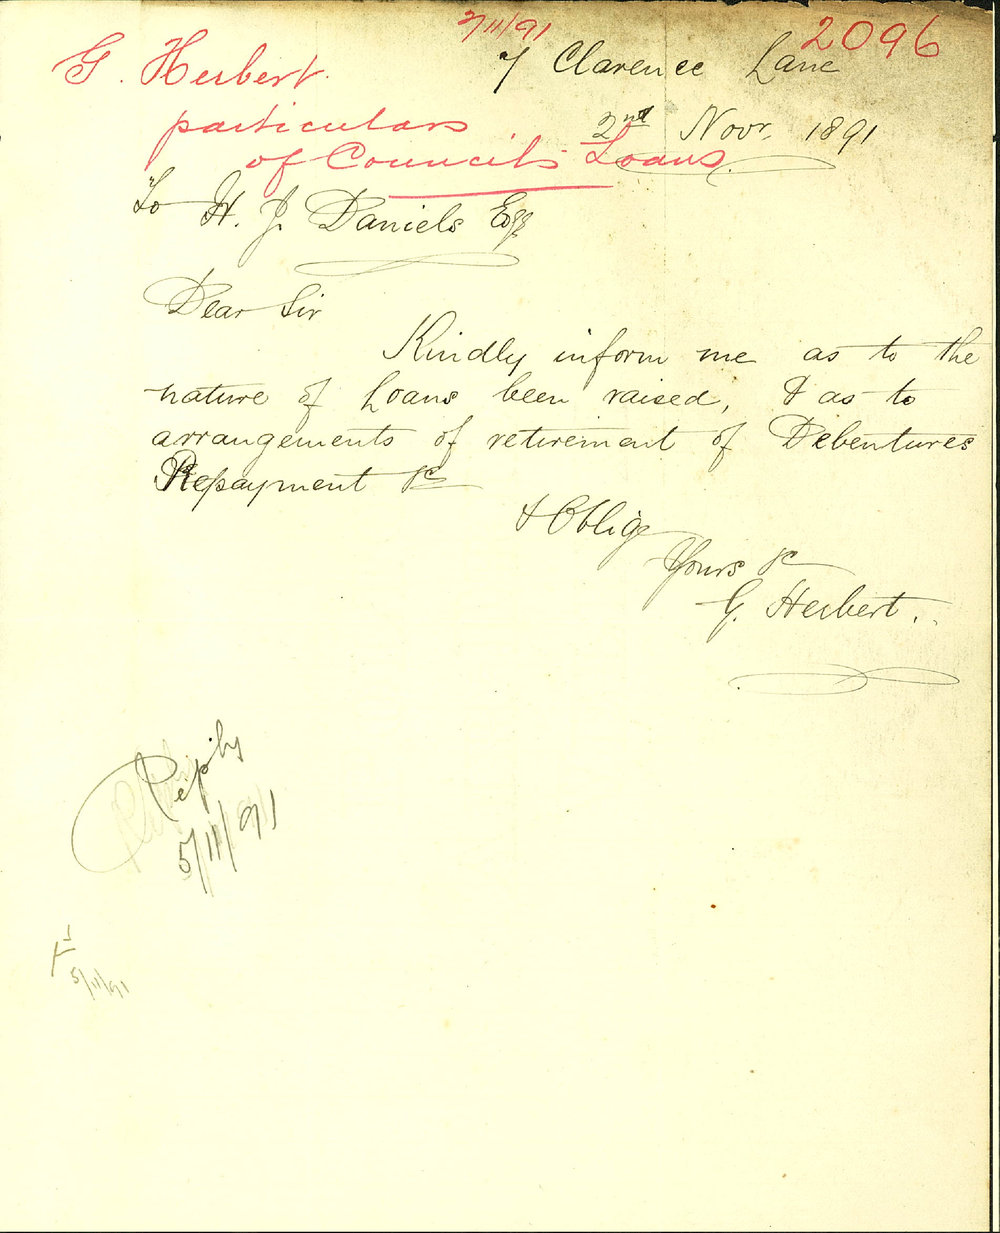 2/11/91
2096
G. Herbert.
particulars
of Council's Loans.
7 Clarence Lane
2nd Novr. 1891
To H. J. Daniels Esq
Dear Sir
Kindly inform me as to the
nature of Loans been raised, & as to
arrangements of retirement of Debentures
Repayment &c
& Oblige
Yours &c
G. Herbert.
Reply
5/11/91
5/11/91